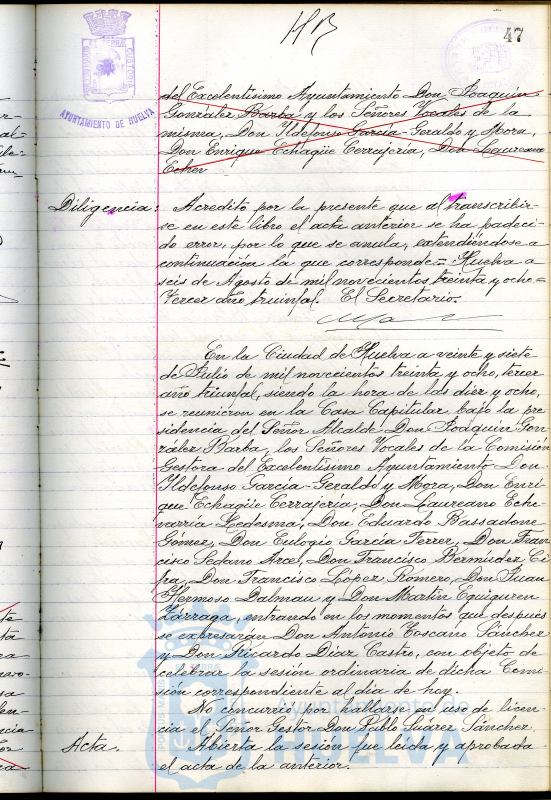 47
AYUNTAMIENTO DE HUELVA
del Excelentísimo Ayuntamiento Don Joaquin
González Barba y los Señores Vocales de la
misma, Don Ildefonso García-Geraldo y Mora,
Don Enrique Echagüe Cerrajería, Don Laureano
Eche
Diligencia: Acredito por la presente que al transcribir-
se en este libro el acta anterior se ha padeci-
do error, por lo que se anula, extendiéndose a
continuación la que corresponde= Huelva a
seis de Agosto de mil novecientos treinta y ocho=
Tercer año triunfal. El Secretario.
En la Ciudad de Huelva a veinte y siete
de Julio de mil novecientos treinta y ocho, tercer
año triunfal, siendo la hora de las diez y ocho,
se reunieron en la Casa Capitular bajo la pre
sidencia del Señor Alcalde Don Joaquin Gon
zález Barba, los Señores Vocales de la Comisión
Gestora del Excelentísimo Ayuntamiento Don
Ildefonso García-Geraldo y Mora, Don Enri
que Echagüe Cerrajería, Don Laureano Eche
varria Ledesma, Don Eduardo Bassadone
Gómez, Don Eulogio García Ferrer, Don Fran
cisco Sedano Arce, Don Francisco Bermúdez Ci
pa, Don Francisco López Romero, Don Juan
Hermoso Dalmau y Don Martín Eguiguren
Zárraga, entrando en los momentos que después
se expresarán Don Antonio Toscano Sánchez
y Don Ricardo Díaz Castro, con objeto de
celebrar la sesión ordinaria de dicha Comi
sión correspondiente al día de hoy.
No concurrió por hallarse en uso de licen
cia el Señor Gestor Don Pablo Suárez Sánchez.
Acta. Abierta la sesión fue leída y aprobada
el acta de la anterior.